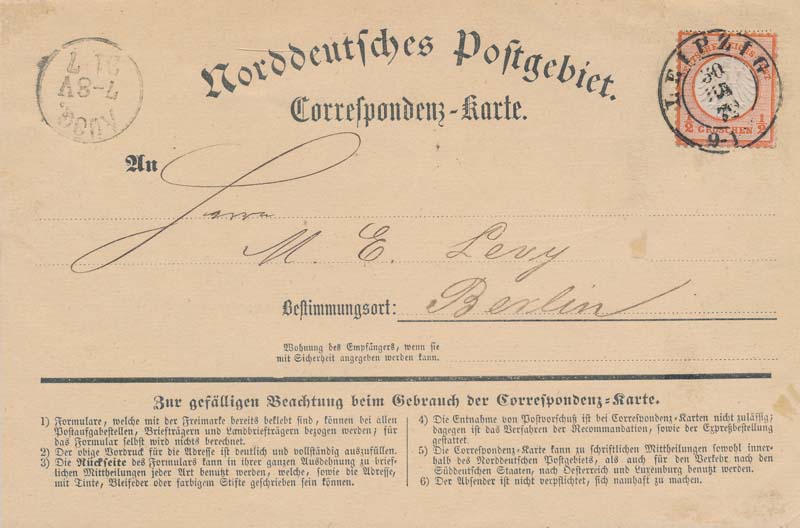 Norddeutsches Postgebiet.
Correspondenz-Karte.
LEIPZIG
30
9-1
1/2 GROSCHEN 1/2
31 7
7-8V
An
Herrn
M. E. Levy
Bestimmungsort: Berlin
Wohnung des Empfängers, wenn sie
mit Sicherheit angegeben werden kann.
Zur gefälligen Beachtung beim Gebrauch der Correspondenz-Karte.
1) Formulare, welche mit der Freimarke bereits beklebt sind, können bei allen
Postaufgabestellen, Briefträgern und Landbriefträgern bezogen werden; für
das Formular selbst wird nichts berechnet.
2) Der obige Vordruck für die Adresse ist deutlich und vollständig auszufüllen.
3) Die Rückseite des Formulars kann in ihrer ganzen Ausdehnung zu brief-
lichen Mittheilungen jeder Art benutzt werden, welche, sowie die Adresse,
mit Tinte, Bleifeder oder farbigem Stifte geschrieben sein können.
4) Die Entnahme von Postvorschuß ist bei Correspondenz-Karten nicht zulässig;
dagegen ist das Verfahren der Recommandation, sowie der Expreßbestellung
gestattet.
5) Die Correspondenz-Karte kann zu schriftlichen Mittheilungen sowohl inner-
halb des Norddeutschen Postgebiets, als auch für den Verkehr nach den
Süddeutschen Staaten, nach Oesterreich und Luxemburg benutzt werden.
6) Der Absender ist nicht verpflichtet, sich namhaft zu machen.